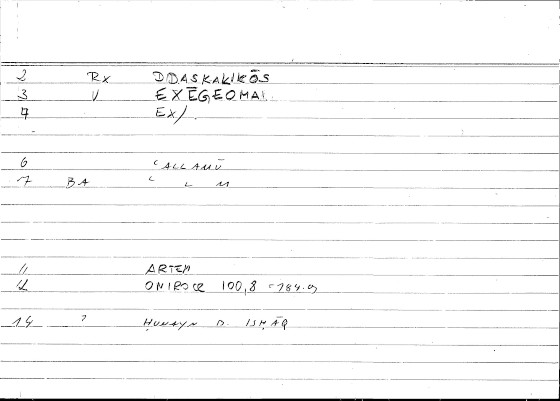 2 Rx DDASKALIKŌS
3 V EXĒGEOMAI
4 EX/
6 ʿALLAMŪ
7 BA ʿ L M
11 ARTEM
12 ONIROCR 100,8 =184.9
14 ? ḤUNAYN B. ISḤĀQ